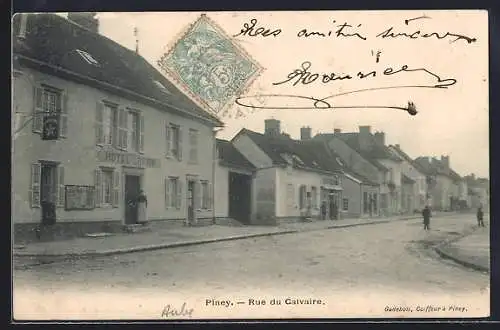 Mes amitiés sincères
Maurice
5
HÔTEL
Piney. — Rue du Calvaire.
Aube
Coiffeur à Piney.